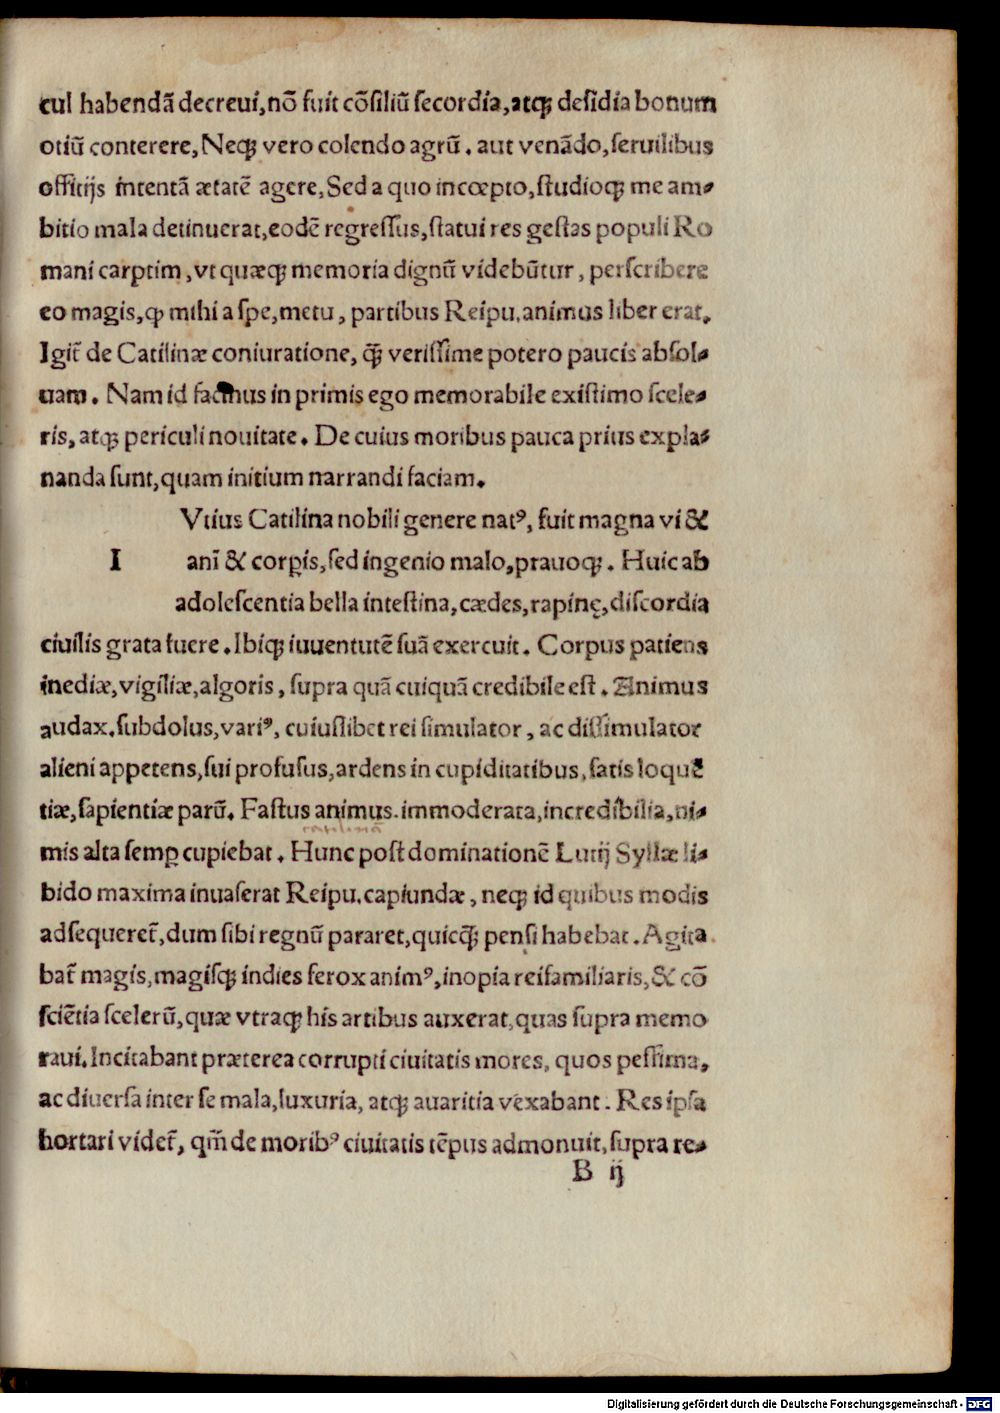 cul habendã decreui, nõ fuit cõsiliũ secordia, atqꝫ desidia bonum
otiũ conterere, Neqꝫ vero colendo agrũ. aut venãdo, seruilibus
offitijs intentã ætatẽ agere, Sed a quo incœpto, studioqꝫ me am⸗
bitio mala detinuerat, eodẽ regressus, statui res gestas populi Ro
mani carptim, vt quæqꝫ memoria dignũ videbũtur, perscribere
eo magis, ꝙ mihi a spe, metu, partibus Reipu. animus liber erat.
Igit̃ de Catilinæ coniuratione, q̃ꝫ verissime potero paucis absol⸗
uam. Nam id facinus in primis ego memorabile existimo scele⸗
ris, atqꝫ periculi nouitate. De cuius moribus pauca prius expla⸗
nanda sunt, quam initium narrandi faciam.
Vtius Catilina nobili genere natꝰ, fuit magna vi &
l ani & corꝑis, sed ingenio malo, prauoqꝫ. Huic ab
adolescentia bella intestina, cædes, rapinę, discordia
ciuilis grata fuere. Ibiqꝫ iuuentutẽ suã exercuit. Corpus patiens
inediæ, vigiliæ, algoris, supra quã cuiquã credibile est. Animus
audax. subdolus, variꝰ, cuiuslibet rei simulator, ac dissimulator
alieni appetens, sui profusus, ardens in cupiditatibus, satis loquẽ
tiæ, sapientiæ parũ. Fastus animus. immoderata, incredibilia, ni⸗
catilinã
mis alta semꝑ cupiebat. Hunc post dominationẽ Lutij Syllæ li⸗
bido maxima inuaserat Reipu. capiundæ, neqꝫ id quibus modis
adsequeret̃, dum sibi regnũ pararet, quicq̃ꝫ pensi habebat. Agita
bat̃ magis, magisqꝫ indies ferox animꝰ, inopia reifamiliaris, & cõ
sciẽtia scelerũ, quæ vtraqꝫ his artibus auxerat, quas supra memo
raui. Incitabant præterea corrupti ciuitatis mores, quos pessima,
ac diuersa inter se mala, luxuria, atqꝫ auaritia vexabant. Res ipsa
hortari videt̃, qm̃ de moribꝰ ciuitatis tẽpus admonuit, supra re⸗
B ij
Digitalisierung gefördert durch die Deutsche Forschungsgemeinschaft - DFG